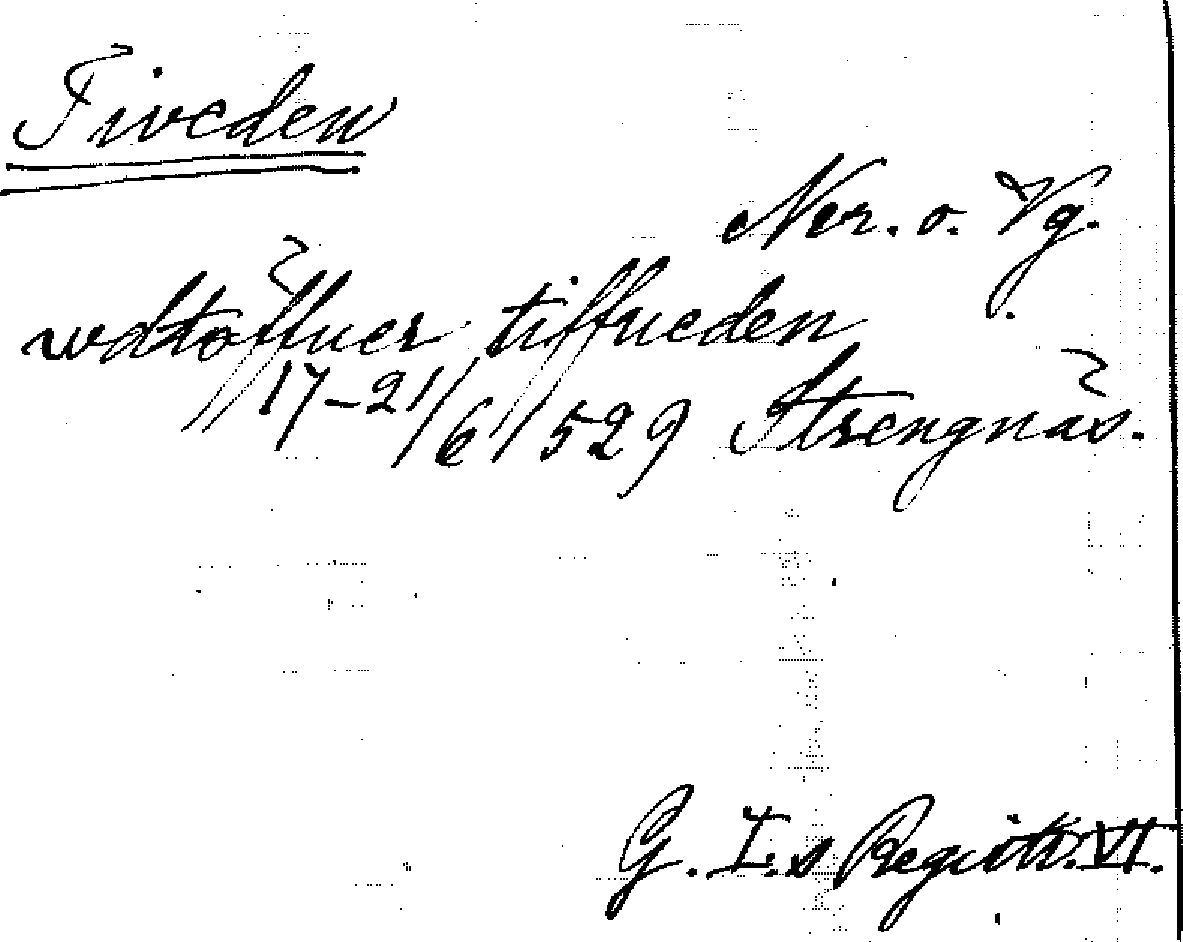 Tiveden
Ner. o. Vg.
wdtöffuer tiffueden
17-21/6 1529 Strengnäs.
G. I.s Registr. VI.